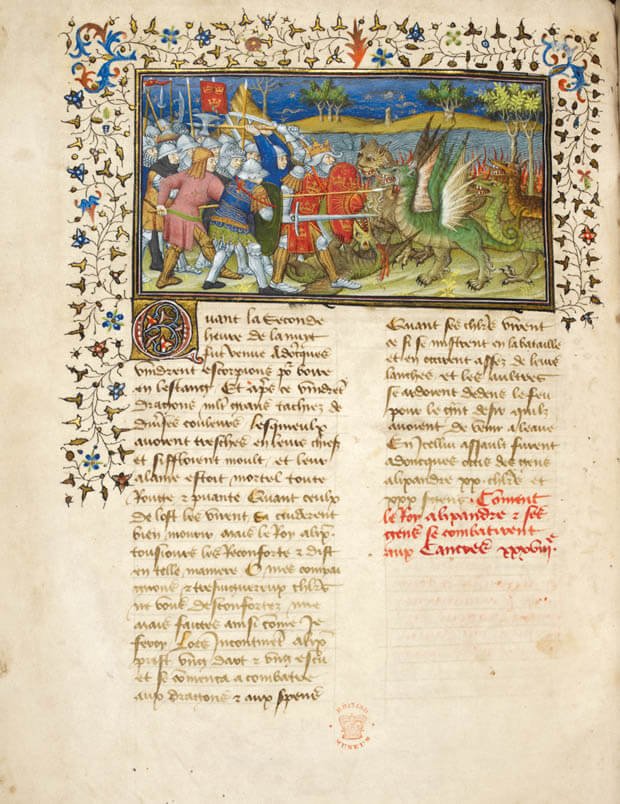 Quant la Seconde
heure de la nuit
fut venue Adoncques
vindrent escorpions po(ur) boire
en lestang Et apres ce vindrent
dragons mlt grans tachiez de
diu(er)ses couleurs lesquieulx
auoient cresches en leurs chiefs
et siffloient moult et leur
alaine estoit mortel toute
Rouge et puante Quant ceulx
de lost les virent Ilz cuiderent
bien mourir mais le Roy alix(andre)
tousiours les Reconforte et dist
en telle maniere O mes compai
gnons et tresuiguereux ch(eva)l(ie)rs
ne vous desconfortez mie
mais faictes ainsi come Je
feray Lors Incontinent alix(andre)
prist vng dart et vng escu
et se comenca a combatre
aux dragons et aux serpens
Quant ses ch(eva)l(ie)rs virent
ce si se mistrent en la bataille
et en occirent assez de leurs
lanches et les aultres
se ardoient dedens le feu
pour le g(ra)nt desir quilz
auoient de venir a leaue
En Icellui assault furent
adoncques occis des gens
alixandre xx ch(eva)l(ie)rs et
xxx s(er)gens Coment
le Roy alixandre et ses
gens se combatirent
aux Cancres xxxviii
BRITISH
MUSEUM